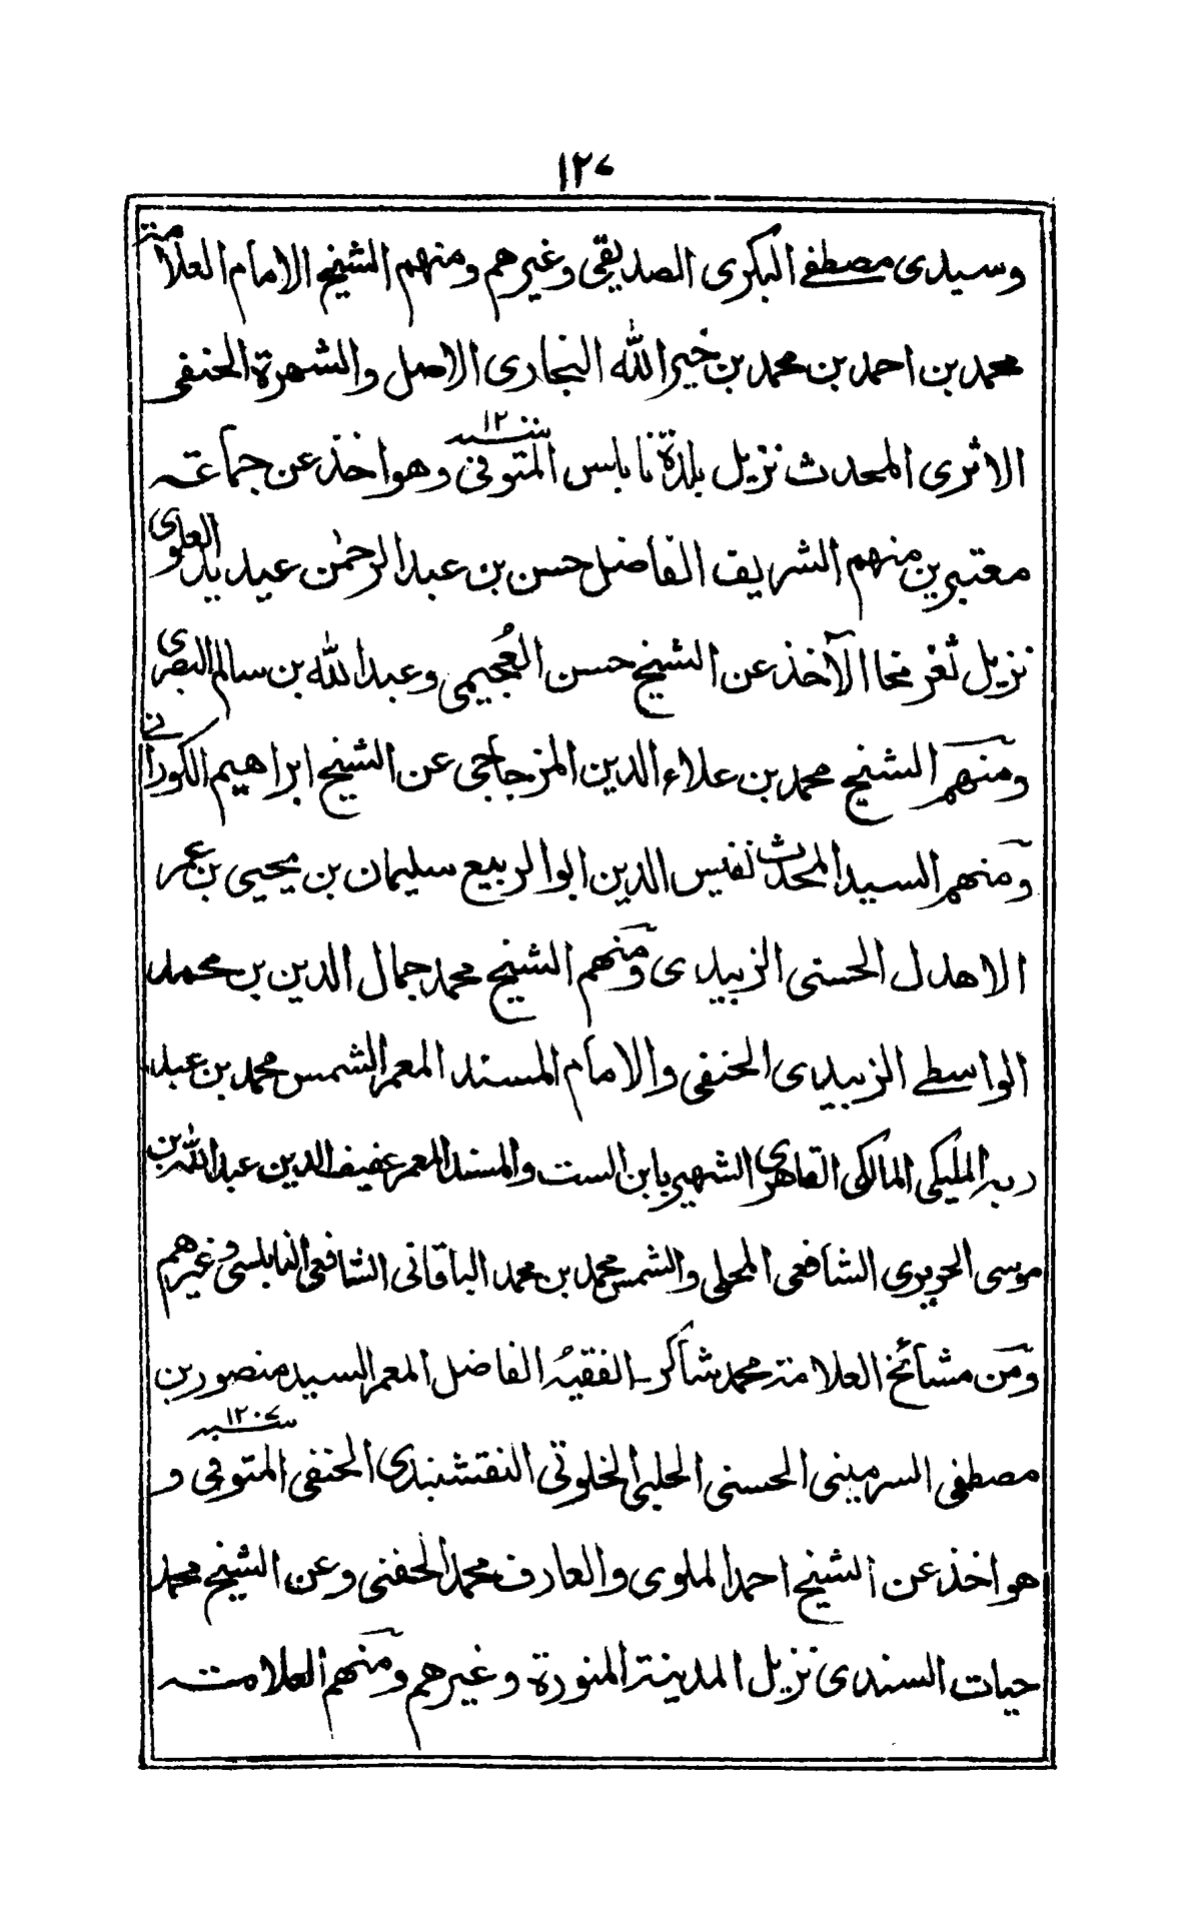 ١٢٧
وسيدى مصطفے البكرى الصديقى وغيرهم ومنهم الشيخ الامام العلامة
محمد بن احمد بن محمد بن خير الله البخارى الاصل والشهرة الحنفى
الاثرى المحدث نزيل بلدة نابلس المتوفى سنة ١٢ وهو اخذ عن جماعة
معتبرين منهم الشريف الفاضل حسن بن عبد الرحمٰن عيديد العلوى
نزيل ثغر مخا الآخذ عن الشيخ حسن العُجيمى وعبد الله بن سالم البصرى
ومنهم الشيخ محمد بن علاء الدين المزجاجى عن الشيخ ابراهيم الكورانى
ومنهم السيد المحدث نفيس الدين ابو الربيع سليمان بن يحيى بن عمر
الاهدل الحسنى الزبيدى ومنهم الشيخ محمد جمال الدين بن محمد
الواسطے الزبيدى الحنفى والامام المسند المعمر الشمس محمد بن عبد
ربه المليكى المالكى القاهرى الشهير بابن الست والمسند المعمر عفيف الدين عبد الله بن
موسى الحريرى الشافعى المحلى والشمس محمد بن محمد الباقانى الشافعى النابلسى وغيرهم
ومن مشائخ العلامة محمد شاكر الفقيهُ الفاضل المعمر السيد منصور بن
مصطفى السرمينى الحسنى الحلبى الخلوتى النقتشنبدى الحنفى المتوفى سنة ١٢٠٧ و
هو اخذ عن الشيخ احمد الملوى والعارف محمد الحفنى وعن الشيخ محمد
حيات السندى نزيل المدينة المنورة وغيرهم ومنهم العلامة